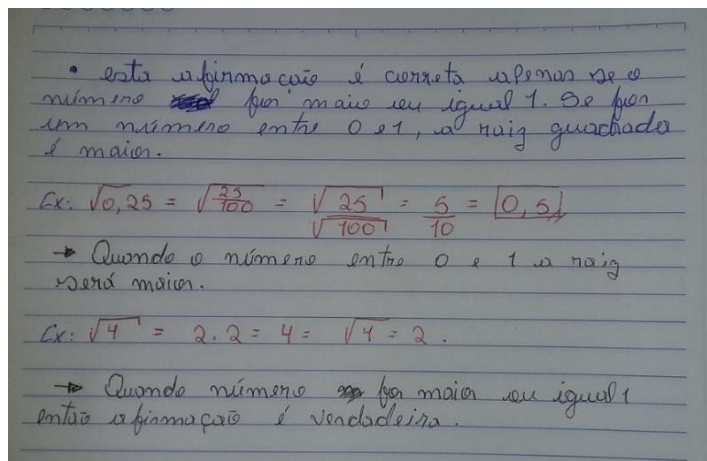 • esta afirmação é correta apenas se o
número for maio ou igual 1. Se for
um número entre 0 e 1, a raiz quadrada
é maior.
Ex: √0,25 = √25/100 = √25/√100 = 5/10 = 0,5
→ Quando o número entre 0 e 1 a raiz
será maior.
Ex: √4 = 2.2 = 4 = √4 = 2.
→ Quando número for maior ou igual 1
então afirmação é verdadeira.